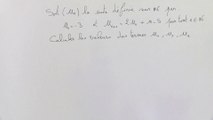 Soit (Un) la suite définie sur IN par
U0 = 3 et Un+1 = 2Un + n - 5 pour tout n ∈ IN
Calculer les valeurs des termes U1, U2, U3